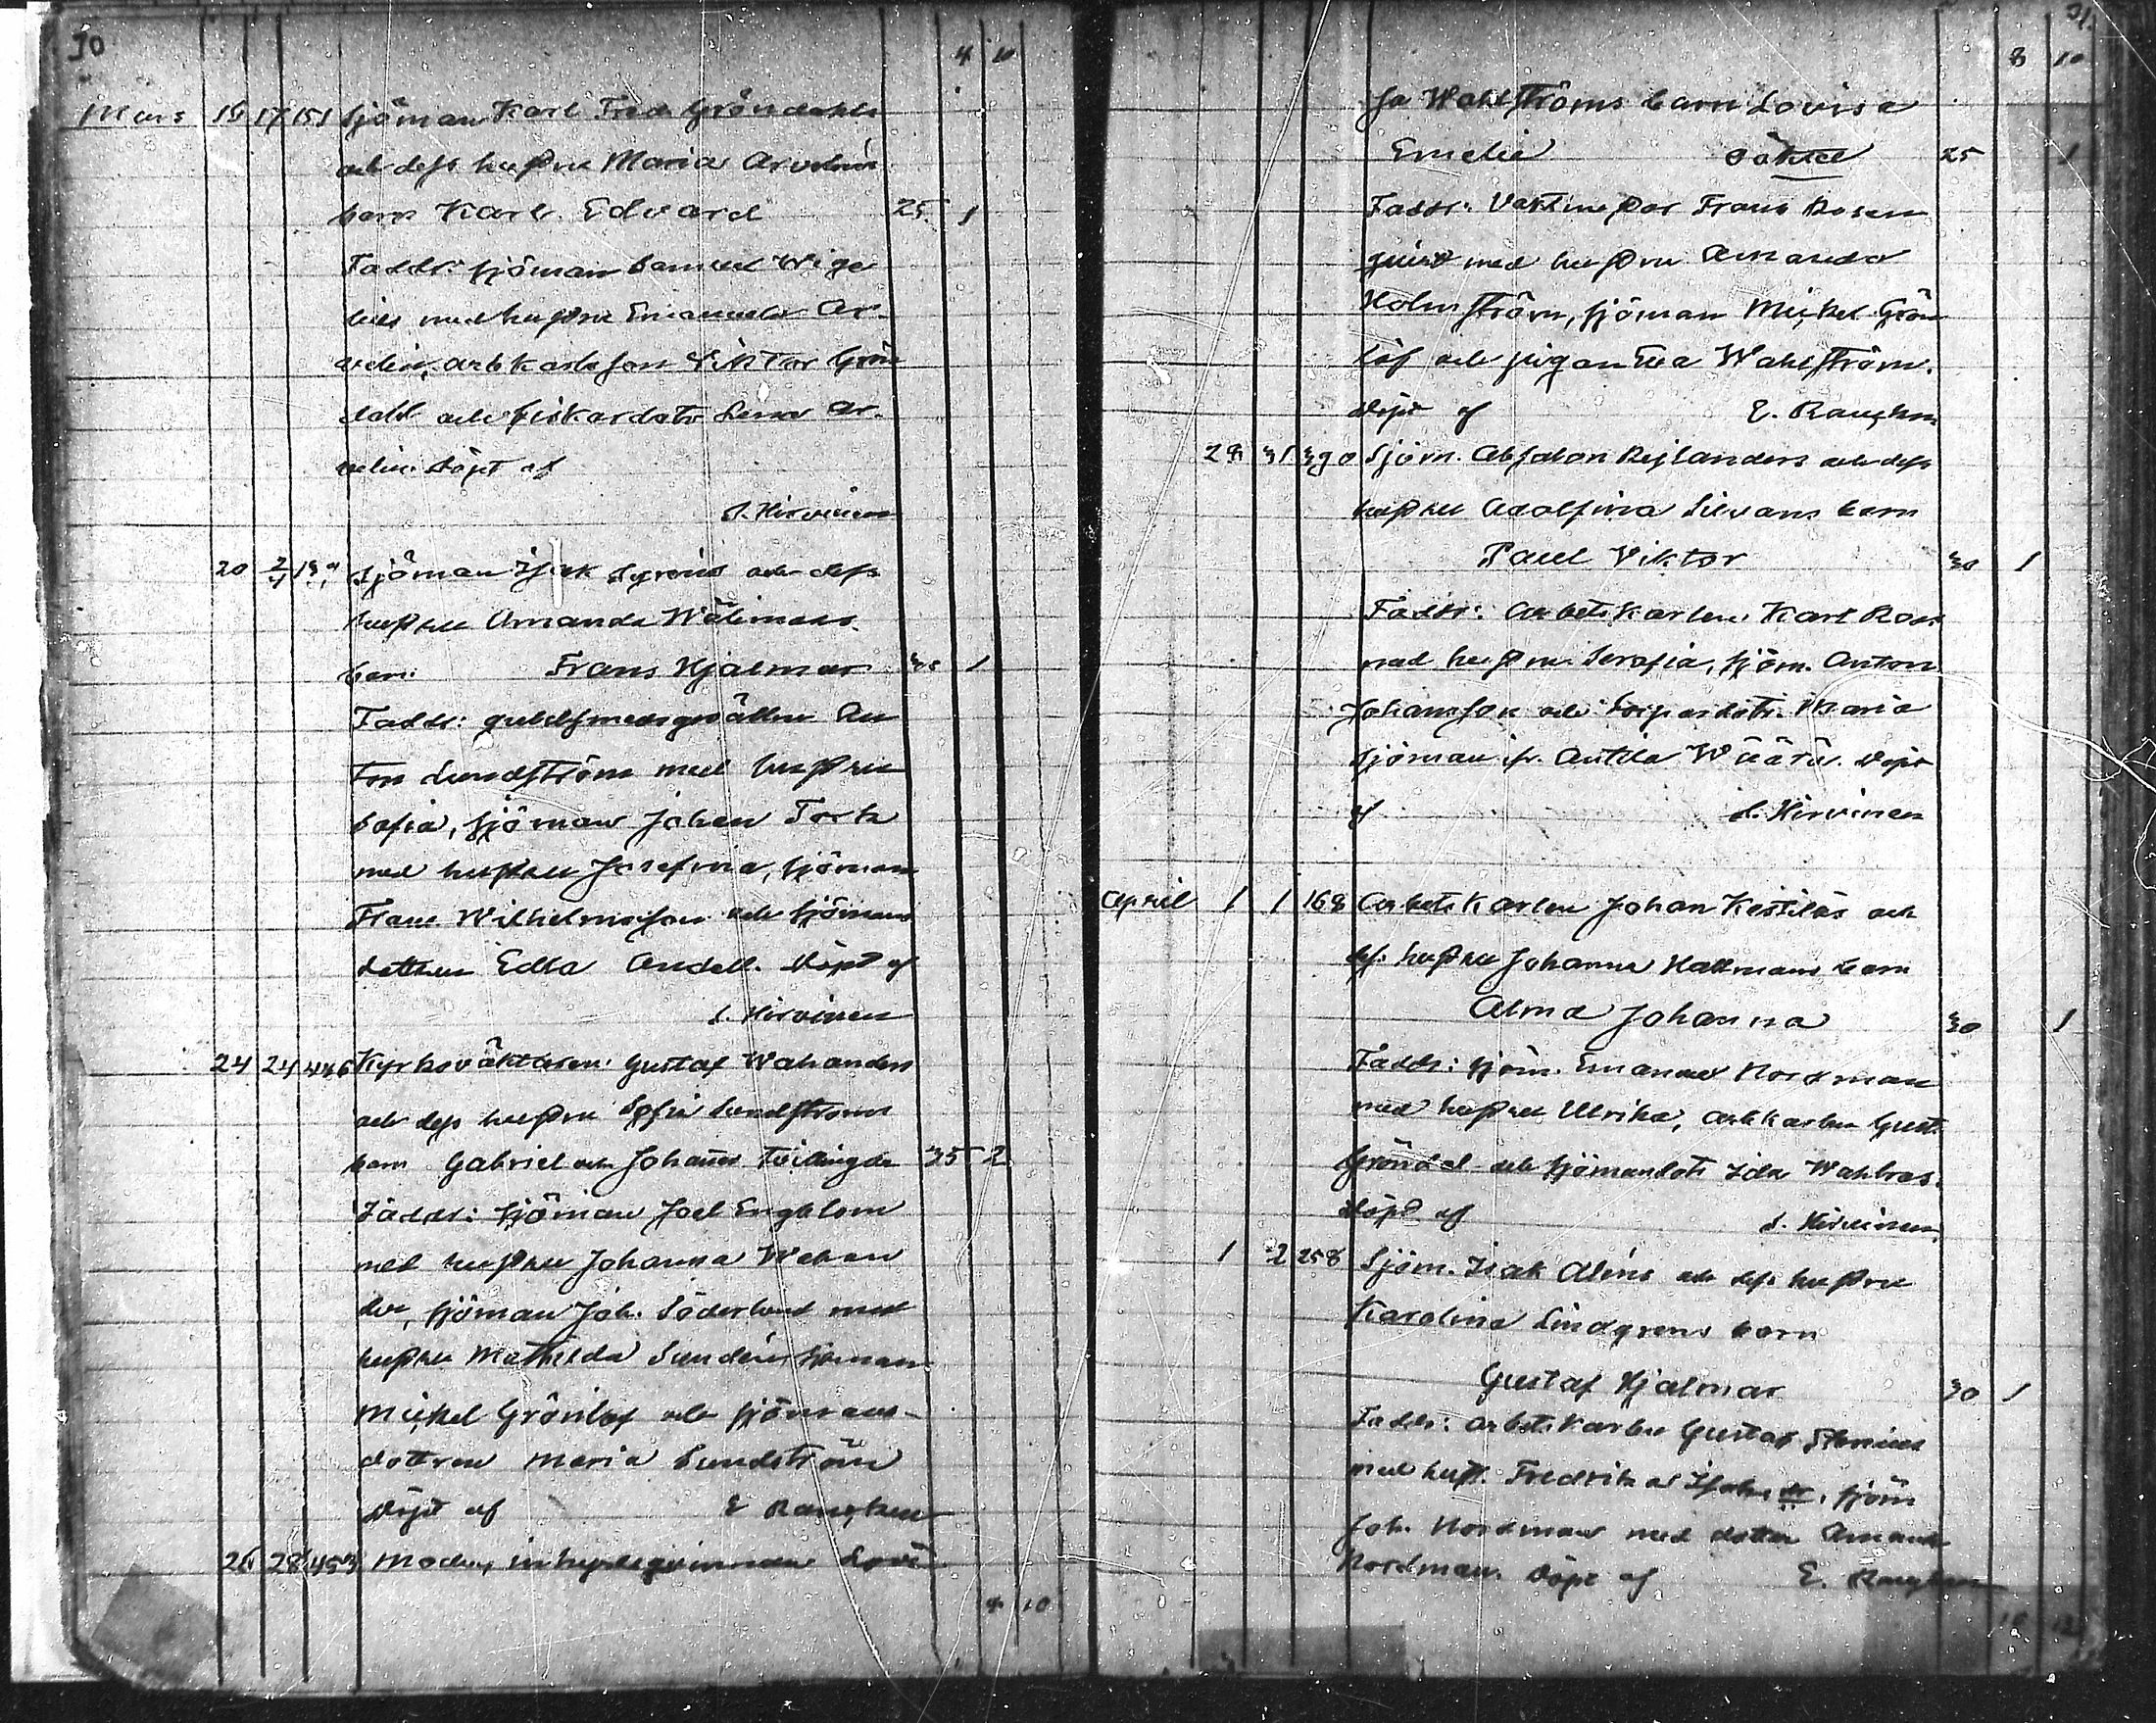 30
4 10
Mars 15 17 151 Sjöman Karl Fred. Gröndahls
och dess hustru Maria Arvelins
barn Karl Edvard 25 1
Faddr: sjöman Samuel Wige
lius med hustru Emanuela Ar-
velin, arbkarlsson Viktor Grön
dahl och fiskardotr Lena Ar-
velin. Döpt af
S. Hirvinen
20 2/4 Sjöman Isak Syrens och dess
hustru Amanda
barn Frans Hjalmar 30 1
Faddr: guldsmedsgesällen An
ton Lundström med hustru
Sofia, sjöman Johan Tork
med hustru Josefina, sjöman
Frans Wilhelmsson och sjömans
dottren Edla Andell. Döpt af
S. Hirvinen
24 24 446 Kyrkoväktaren Gustaf Wahanders
och dess hustru Sofia Lundströms
barn Gabriel och Johannes Tvillingar 35 2
Faddr: sjöman Joel Engblom
med hustru Johanna Wahan
der, sjöman Joh. Söderlund med
hustru Mathilda Sundén, sjöman
Mickel Grönlöf och sjömans-
dottren Maria Sundström
Döpt af E Rancken
26 28 453 Modern, inhyseqvinnan Lovi
8 10
31.
8 10
sa Wahlströms barn Lovisa
Emelie oäkta 25 1
Faddr: Vaktmästar Frans Rosen
quist med hustru Amanda
Holmström, sjöman Mickel Grön
löf och pigan Eva Wahlström.
Döpt af E. Rancken
28 31 390 Sjöm. Absalon Rejlanders och dess
hustru Adolfina Silvans barn
Paul Viktor 30 1
Faddr: Arbetskarlen Karl Ross
med hustru Serafia, sjöm. Anton
Johansson och Maria
Sjöman, fr. Antila Wäärä. Döpt
af S. Hirvinen
April 1 1 168 Arbetskarlen Johan Kestiläs och
dess hustru Johanna Hallmans barn
Alma Johanna 30 1
Faddr: sjöm. Emanuel Nordman
med hustru Ulrika, arbkarlen Gust.
Gröndal och sjömansdotr Ida Wahlroos.
Döpt af S. Hirvinen
1 2 258 Sjöm. Isak Aléns och dess hustru
Karolina Lindgrens barn
Gustaf Hjalmar 30 1
Faddr: arbetskarlen Gustaf
med hust. Fredrika Isaksdr, sjöm
Joh. Nordman med dotter Amanda
Nordman. Döpt af E. Rancken
10 12